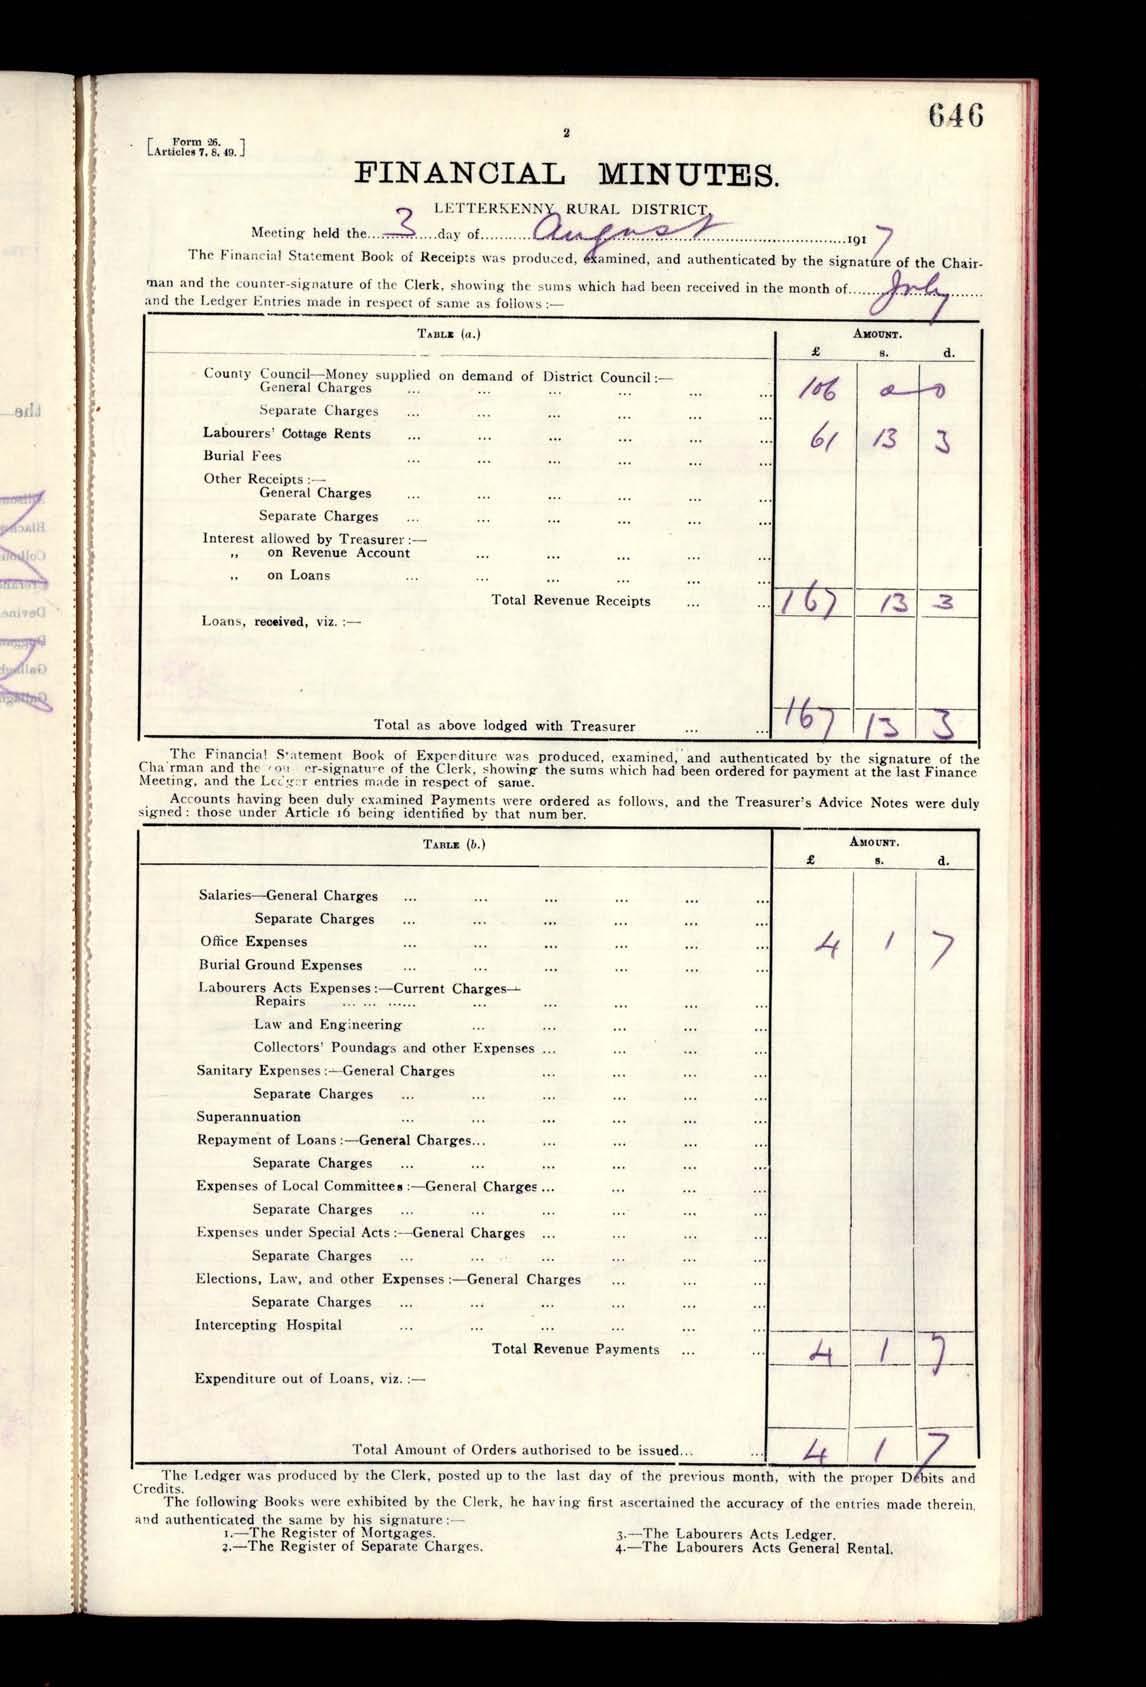 646
2
[Form 26.
Articles 7, 8, 49.]
FINANCIAL MINUTES.
LETTERKENNY RURAL DISTRICT.
Meeting held the....3....day of..........August..........1917
The Financial Statement Book of Receipts was produced, examined, and authenticated by the signature of the Chair-
man and the counter-signature of the Clerk, showing the sums which had been received in the month of......July......
and the Ledger Entries made in respect of same as follows :—
TABLE (a.) AMOUNT.
£ s. d.
County Council—Money supplied on demand of District Council :—
General Charges ... ... ... ... ... ... 106 0 0
Separate Charges ... ... ... ... ... ...
Labourers' Cottage Rents ... ... ... ... ... ... 61 13 3
Burial Fees ... ... ... ... ... ...
Other Receipts :—
General Charges ... ... ... ... ... ...
Separate Charges ... ... ... ... ... ...
Interest allowed by Treasurer :—
,, on Revenue Account ... ... ... ... ...
,, on Loans ... ... ... ... ... ...
Total Revenue Receipts ... ... 167 13 3
Loans, received, viz. :—
Total as above lodged with Treasurer ... ... 167 13 3
The Financial Statement Book of Expenditure was produced, examined, and authenticated by the signature of the
Chairman and the counter-signature of the Clerk, showing the sums which had been ordered for payment at the last Finance
Meeting, and the Ledger entries made in respect of same.
Accounts having been duly examined Payments were ordered as follows, and the Treasurer's Advice Notes were duly
signed : those under Article 16 being identified by that number.
TABLE (b.) AMOUNT.
£ s. d.
Salaries—General Charges ... ... ... ... ... ...
Separate Charges ... ... ... ... ... ...
Office Expenses ... ... ... ... ... ... 4 1 7
Burial Ground Expenses ... ... ... ... ... ...
Labourers Acts Expenses :—Current Charges—
Repairs ... ... ...... ... ... ... ... ...
Law and Engineering ... ... ... ... ...
Collectors' Poundage and other Expenses ... ... ... ...
Sanitary Expenses :—General Charges ... ... ... ...
Separate Charges ... ... ... ... ... ...
Superannuation ... ... ... ... ... ...
Repayment of Loans :—General Charges... ... ... ... ...
Separate Charges ... ... ... ... ... ...
Expenses of Local Committees :—General Charges ... ... ... ...
Separate Charges ... ... ... ... ... ...
Expenses under Special Acts :—General Charges ... ... ... ...
Separate Charges ... ... ... ... ... ...
Elections, Law, and other Expenses :—General Charges ... ... ...
Separate Charges ... ... ... ... ... ...
Intercepting Hospital ... ... ... ... ... ...
Total Revenue Payments ... ... 4 1 7
Expenditure out of Loans, viz. :—
Total Amount of Orders authorised to be issued... ... 4 1 7
The Ledger was produced by the Clerk, posted up to the last day of the previous month, with the proper Debits and
Credits.
The following Books were exhibited by the Clerk, he having first ascertained the accuracy of the entries made therein,
and authenticated the same by his signature :—
1.—The Register of Mortgages. 3.—The Labourers Acts Ledger.
2.—The Register of Separate Charges. 4.—The Labourers Acts General Rental.